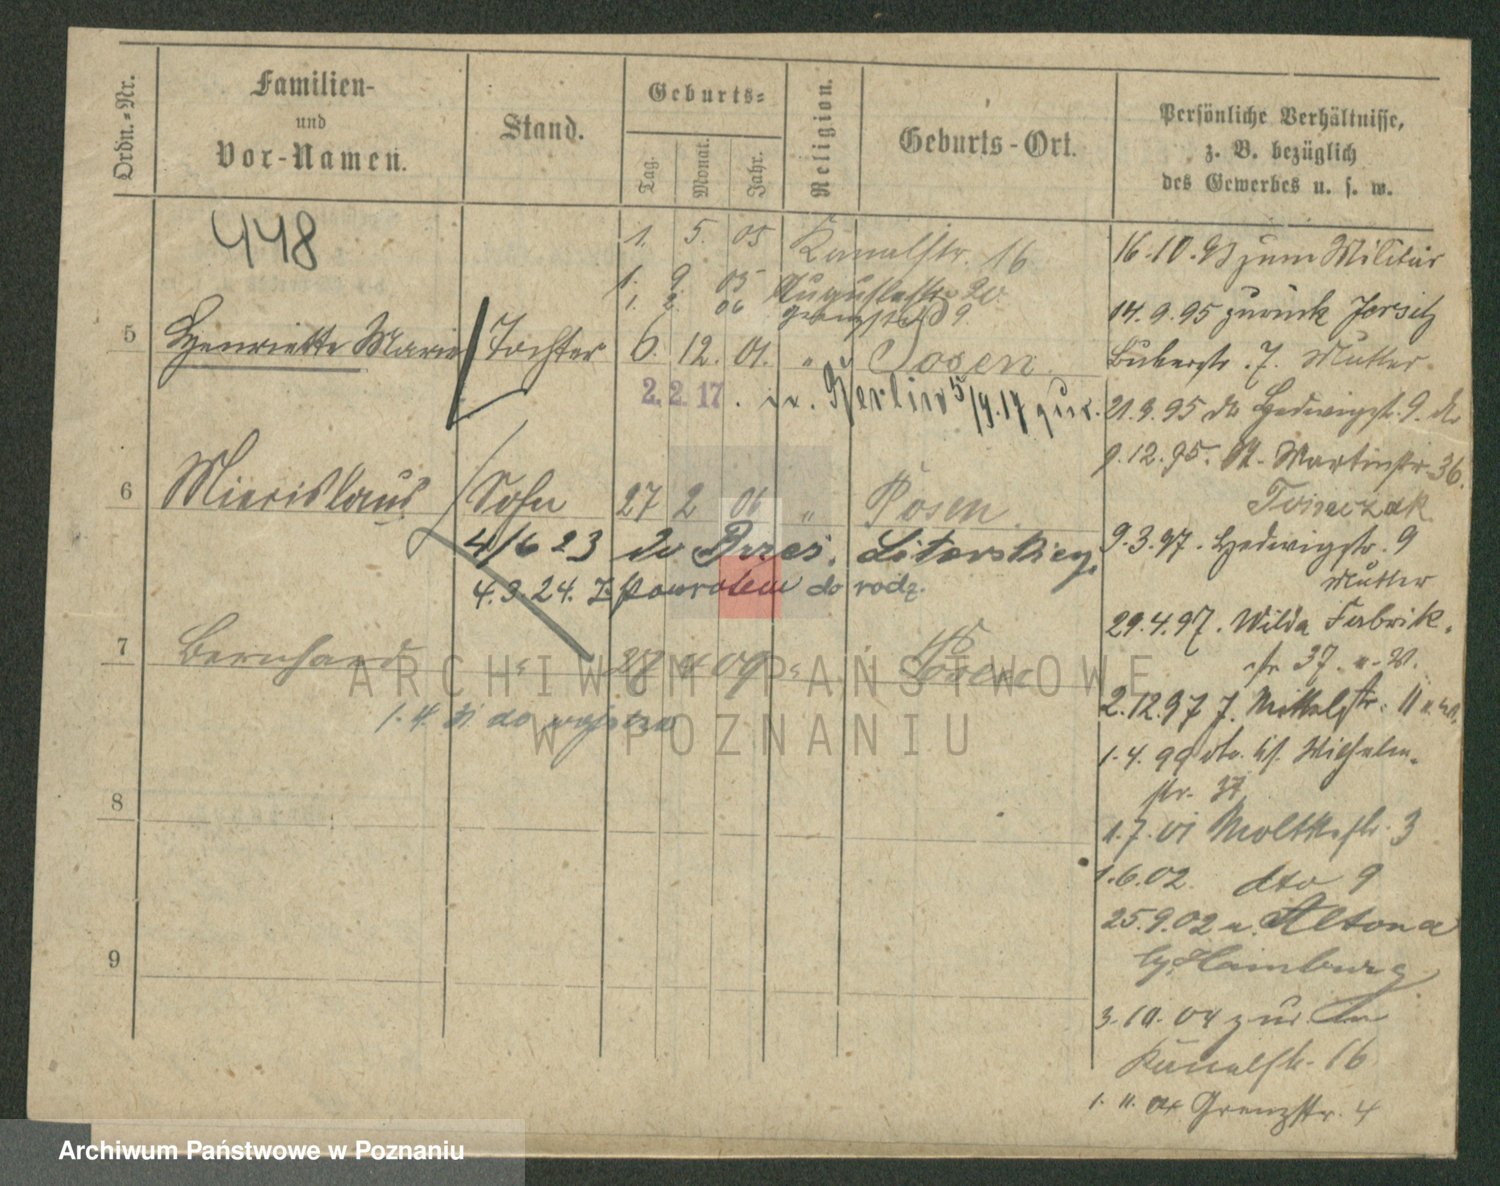 Ordn.-Nr.
Familien-
und
Vor-Namen.
Stand.
Geburts-
Tag.
Monat.
Jahr.
Religion.
Geburts-Ort.
Persönliche Verhältnisse,
z. B. bezüglich
des Gewerbes u. s. w.
448
1. 5. 05 Kanalstr. 16
1. 9. 05 Augustastr 20.
1. 2. 06 Grenzstr 9.
5 Henriette Marie Tochter 6. 12. 01. " Posen.
2. 2. 17. n. Berlin 5/9.17 zur.
6 Mieczislaus Sohn 27 2 06 " Posen.
4/6 23 do Brześ. Litewskiego
4. 9. 24. Z powrotem do rodz.
7 Bernhard " 28 4 09 " Posen
1. 4. 31 do
8
9
16.10.93 zum Militär
14.9.95 zurück Jersitz
Bukerstr. 7. Mutter
21.9.95 do Hedwigstr. 9. do
9.12.95. St. Martinstr 36.
9.3.97. Hedwigstr. 9
Mutter
29.4.97. Wilda Fabrik.
str 37.
2.12.97 J. Mittelstr. 11
1.4.99 dto. Wilhelm-
str. 37
1.7.01 Moltkestr. 3
1.6.02. dto 9
25.9.02 n. Altona
b/Hamburg
3.10.04 zur.
Kanalstr. 16
1. 11. 04 Grenzstr. 4
ARCHIWUM PAŃSTWOWE
W POZNANIU
Archiwum Państwowe w Poznaniu